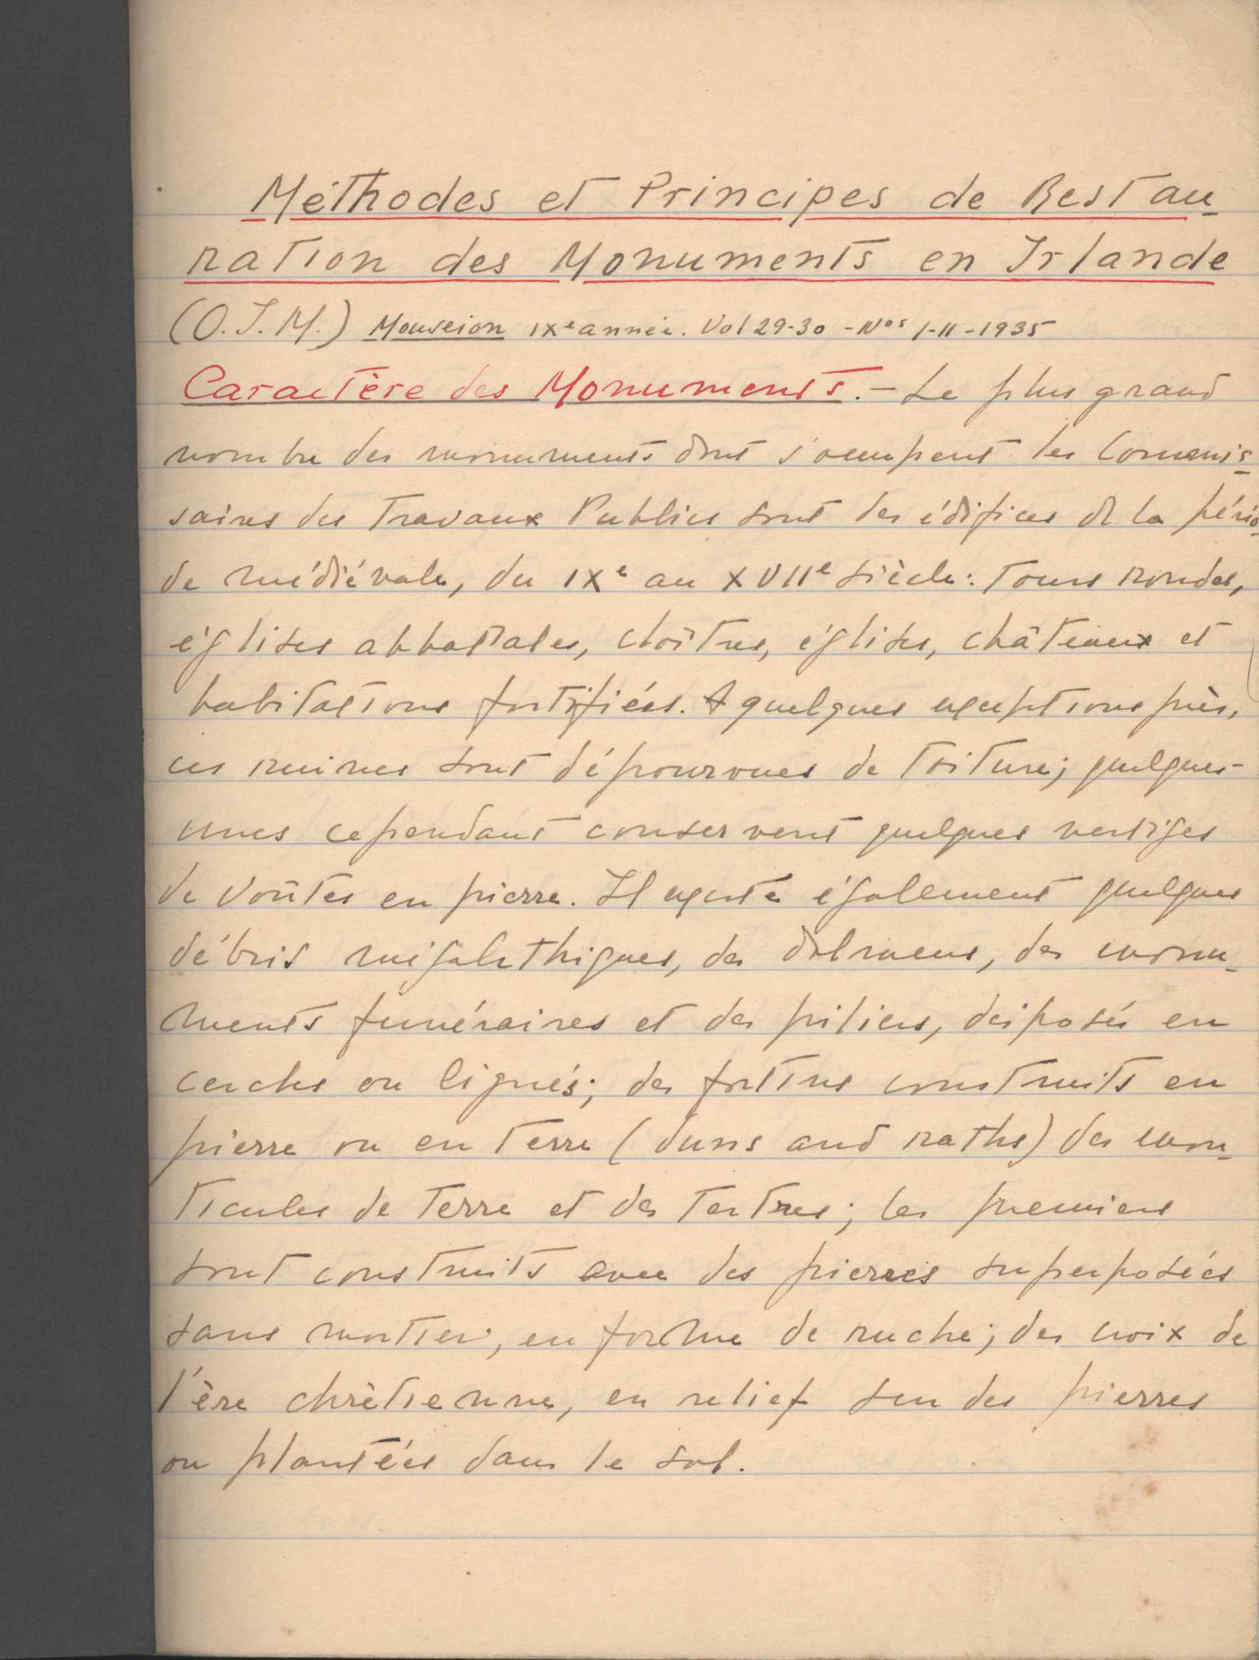 Méthodes et Principes de Restau-
ration des Monuments en Irlande
(O.I.M.) Mouseion IXe année. Vol 29-30 - Nos I-II - 1935
Caractère des Monuments. - Le plus grand
nombre des monuments dont s'occupent les Commis-
saires des Travaux Publics sont des édifices de la pério-
de médiévale, du IXe au XVIIe siècle: Tours rondes,
églises abbatiales, cloîtres, églises, châteaux et
habitations fortifiées. A quelques exceptions près,
ces ruines sont dépourvues de toiture; quelques-
unes cependant conservent quelques vestiges
de voûtes en pierre. Il existe également quelques
débris mégalithiques, des dolmens, des monu-
ments funéraires et des piliers, disposés en
cercles ou lignés; des fortins construits en
pierre ou en terre (duns and raths) des mon-
ticules de terre et des tertres; les premiers
sont construits avec des pierres superposées
sans mortier, en forme de ruche; des croix de
l'ère chrètienne, en relief sur des pierres
ou plantées dans le sol.